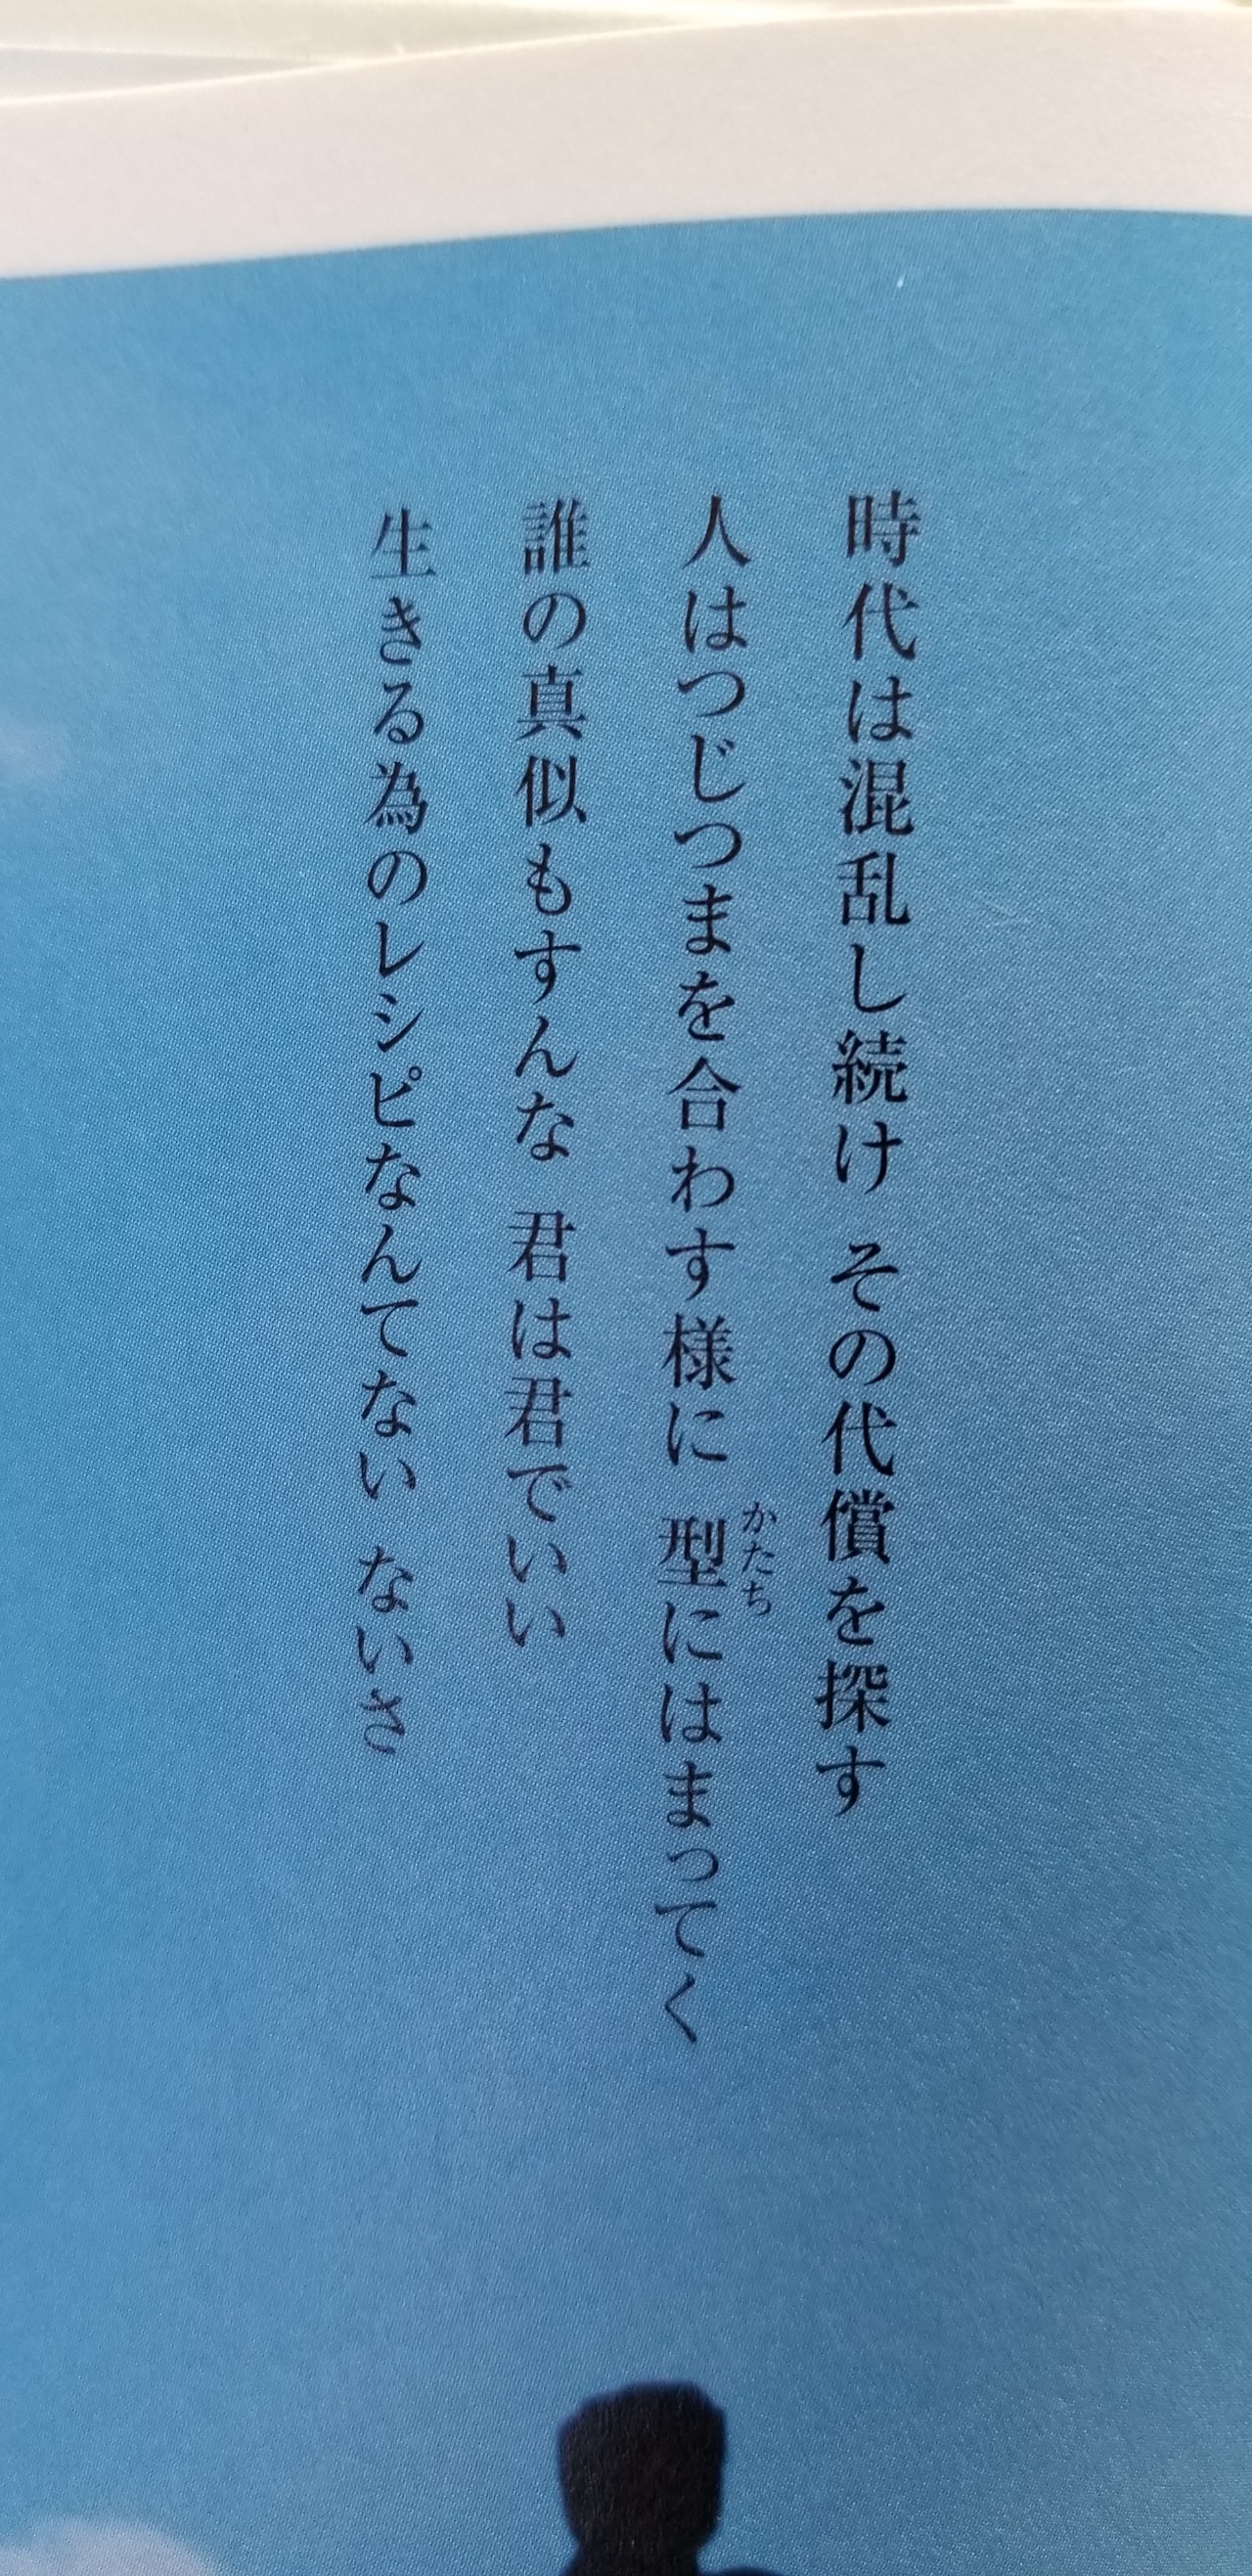 時代は混乱し続け その代償を探す
人はつじつまを合わす様に 型にはまってく
かたち
誰の真似もすんな 君は君でいい
生きる為のレシピなんてない ないさ